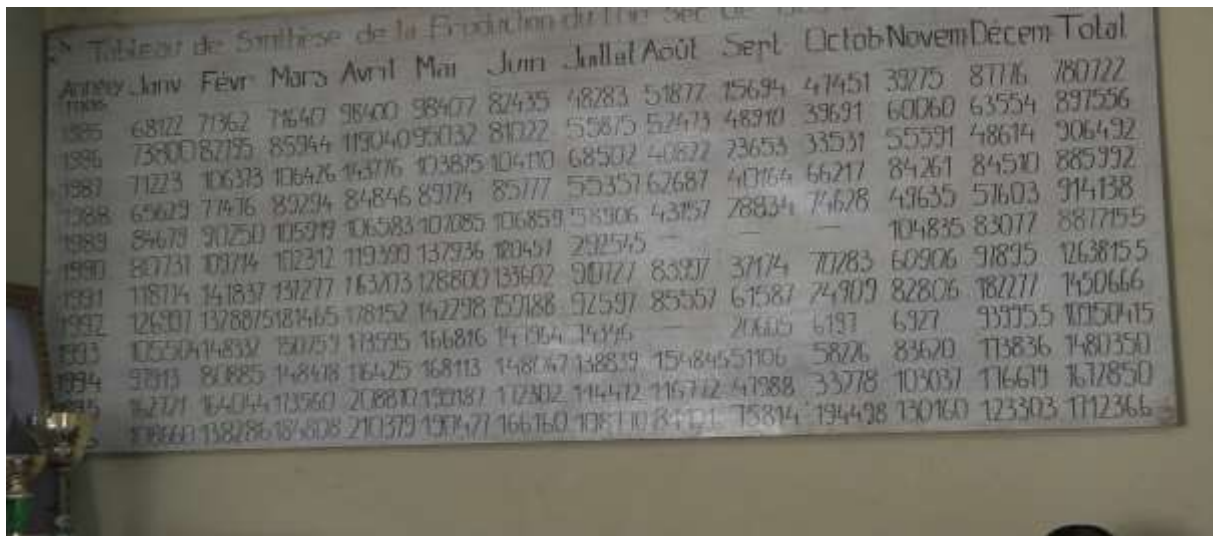 Tableau de Synthèse de la Production du Thé Sec de
Années Janv Févr Mars Avril Mai Juin Juillet Août Sept Octob Novem Décem Total
mois
1985 68122 71362 71640 98400 98407 82435 48283 51877 15694 47451 39275 87776 780722
1986 73800 82795 85944 119040 95032 81022 55875 52473 48910 39691 60060 63554 897556
1987 71223 106373 106426 143776 103875 104110 68502 40822 23653 33531 55591 48614 906492
1988 65629 77476 89294 84846 89174 85777 55357 62687 40164 66217 84261 84510 885992
1989 84679 90250 105919 106583 107085 106859 58906 43157 28834 74628 49635 57603 914138
1990 80731 109714 102312 119399 137936 120457 292545 — — — 104835 83077 8877155
1991 118714 141837 137277 163703 128800 133602 910727 83997 37174 70283 60906 91895 12638155
1992 126907 1328875 181465 178152 142298 159188 92597 85557 61587 74909 82806 182277 1450666
1993 105504 148337 150759 173595 166816 — 20605 6197 6927 939955 10950415
1994 97913 80885 148478 116425 168113 148067 138839 154845 51106 58226 83620 113836 1480350
162721 164044 173560 208810 199187 172302 114472 116772 47988 33778 103037 176679 1672850
108660 138286 184808 210379 190427 166160 75814 194498 130160 123303 1712366